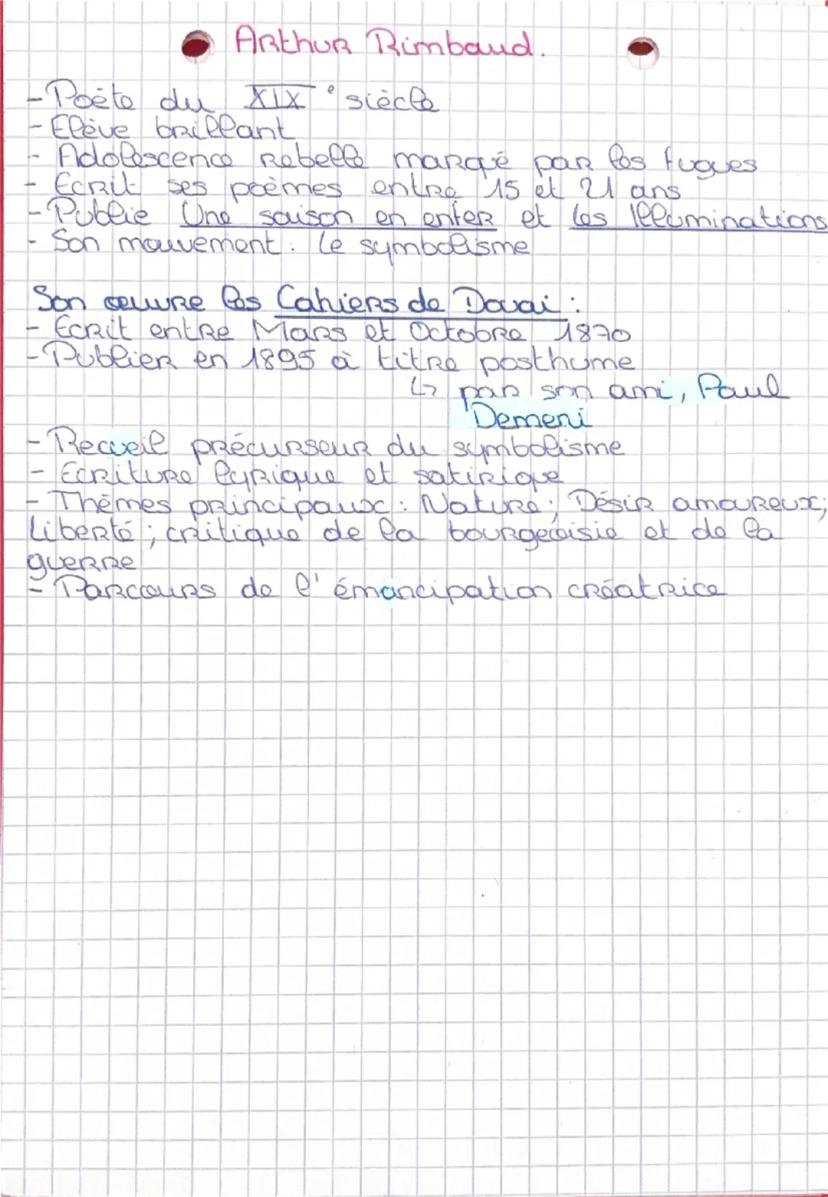 Arthur Rimbaud.
- Poète du XIXe siècle
- Elève brillant
- Adolescence rebelle marqué par les fugues
- Ecrit ses poèmes entre 15 et 21 ans
- Publie Une saison en enfer et les Illuminations
- Son mouvement : le symbolisme
Son œuvre les Cahiers de Douai :
- Ecrit entre Mars et Octobre 1870
- Publier en 1895 à titre posthume
↳ par son ami, Paul
Demeni
- Recueil précurseur du symbolisme
- Ecriture lyrique et satirique
- Thèmes principaux : Nature ; Désir amoureux ;
liberté ; critique de la bourgeoisie et de la
guerre
- Parcours de l'émancipation créatrice